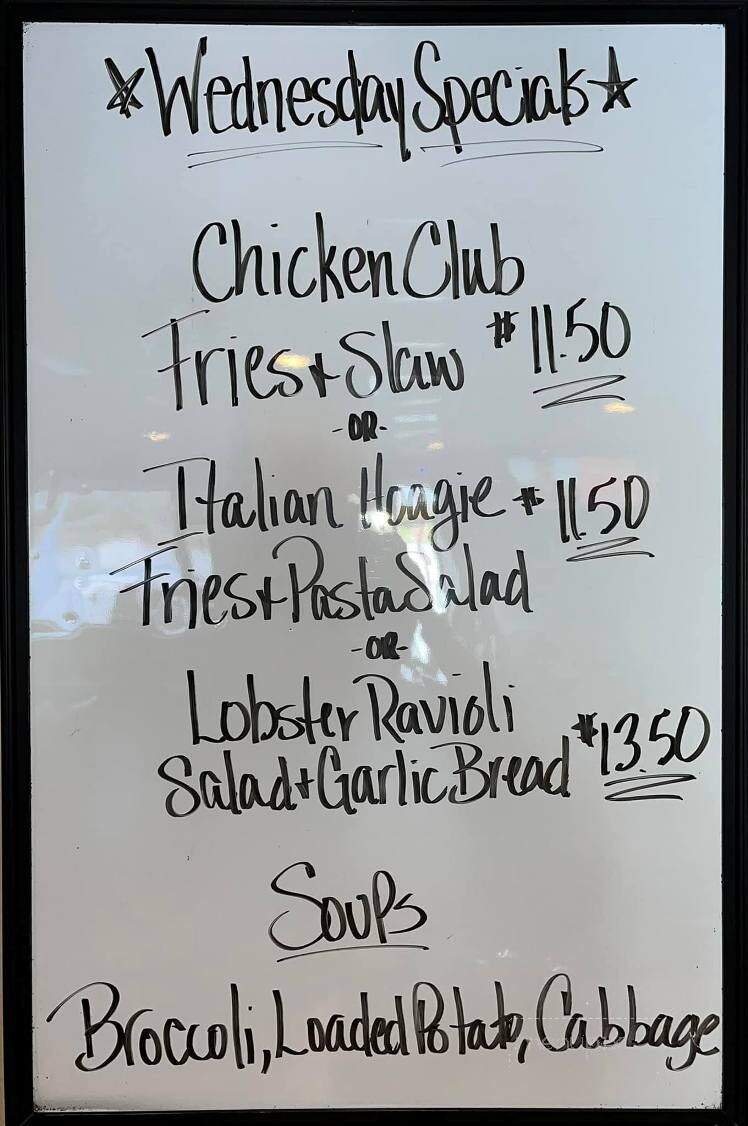 Wednesday Specials
Chicken Club
Fries + Slaw $11.50
-OR-
Italian Hoagie $11.50
Fries + Pasta Salad
-OR-
Lobster Ravioli
Salad + Garlic Bread $13.50
Soups
Broccoli, Loaded Potato, Cabbage